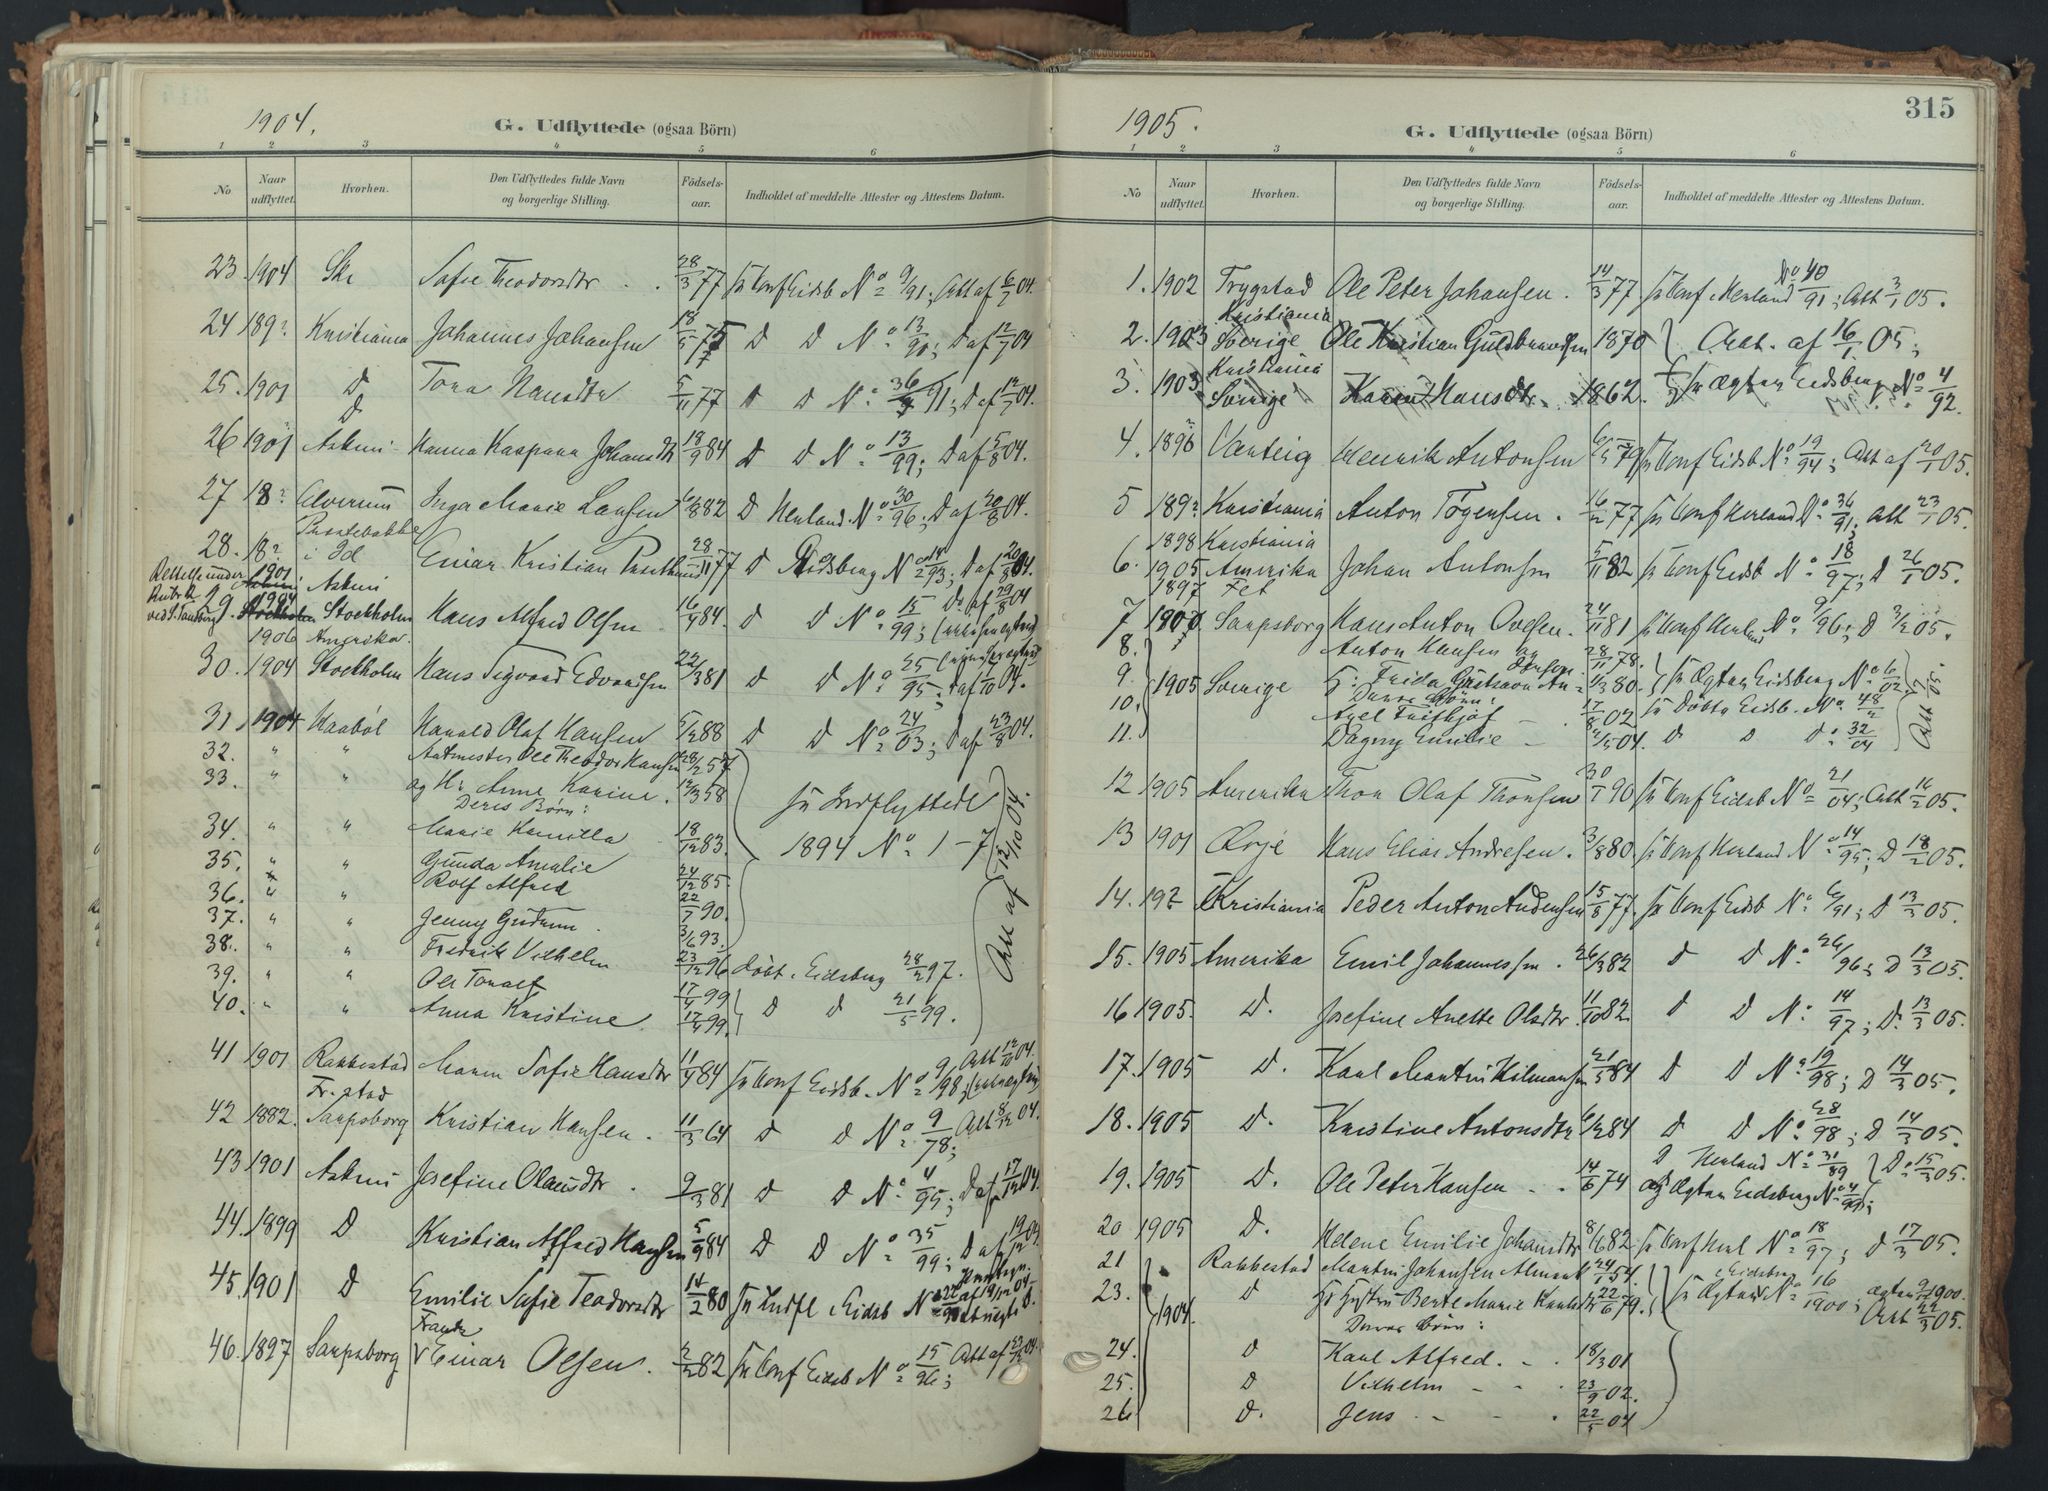 1904.
G. Udflyttede (ogsaa Börn)
1 2 3 4 5 6
No. Naar udflyttet. Hvorhen. Den Udflyttedes fulde Navn og borgerlige Stilling. Födsels-aar. Indholdet af meddelte Attester og Attestens Datum.
23. 1904 Ski Sofie Theodorsdtr 28/3 77 Conf Eidsb No 9/91; Att af 6/7 04.
24 189? Kristiania Johannes Johansen 18/5 75 D D No 13/90; D af 12/7 04
25. 1901 D 5/11 77 D D No 36/91; D af 12/7 04.
26 1901 D Askim Hanna Kaspara Johansdtr 18/9 84 D D No 13/99; D af 5/8 04.
27 18? Elverum Inga Marie Larsen 6/8 82 D Herland No 30/96; D af 20/8 04.
28. 18? i Id Einar Kristian 28/11 77 D Eidsberg No 14/93; D af 20/8 04.
1901 Askim
29. 1904 Stockholm Hans Alfred Olsen 16/9 84. D D No 15/99; Do af 29/8 04
1906 Amerika
30. 1904 Stockholm Hans Sigvard Edvardsen 22/3 81 D D No 25/95; D af 1/10 04.
31 1904 Haabøl Harald Olaf Hansen 5/12 88 D D No 24/03; D af 23/8 04.
32. " " Ole Theodor Hansen 28/2 57
33. " " og H: Anne Karine. 12/3 58 Indflyttede
Deres Børn:
34. " " Marie Kamilla 18/12 83. 1894 No 1-7
35. " " Gunda Amalie 24/12 85.
36. " " Rolf Alfred 22/7 90.
37. " " Jenny Gudrun 3/6 93.
38. " " Fredrik Vilhelm 23/12 96 Døbt i Eidsberg 28/2 97.
39. " " Ole Toralf 17/4 99 D D 21/5 99.
40. " " Anna Kristine. 17/4 99.
Att af 12/10 04.
41 1901 Rakkestad Maren Sofie Hansdtr 11/4 84 Conf Eidsb. No 9/98; Att 12/10 04.
Fr.stad
42 1882. Sarpsborg Kristian Hansen. 11/3 64 D D No 9/78; Att 8/12 04.
43 1901 Askim Josefine Olausdtr. 9/3 81 D D No 4/95; D af 17/12 04.
44. 1899 D Kristian Alfred Hansen 5/9 84 D D No 35/99; D af 19/12 04.
45. 1901 D Emilie Sofie Teodorsdtr 14/2 80 Indfl Eidsb
46. 1897 Sarpsborg Einar Olsen. 2/2 82 Conf Eidsb No 15/96; Att af 22/12 04.
1905.
315
G. Udflyttede (ogsaa Börn)
1 2 3 4 5 6
No Naar udflyttet. Hvorhen. Den Udflyttedes fulde Navn og borgerlige Stilling. Födsels-aar. Indholdet af meddelte Attester og Attestens Datum.
1. 1902 Trygstad Ole Peter Johansen. 14/3 77. Conf. Herland No 40/91; Att 3/1 05.
Kristiania
2. 1903 Sverige Ole Kristian Guldbrandsen 1870 Att. af 16/1 05;
Kristiania
3. 1903 Sverige Karen Hansdtr. 1862. Ægtev Eidsberg No 4/92.
4. 1896 Varteig Henrik Antonsen 79 Conf Eidsb No 19/94; Att af 20/1 05.
5 189? Kristiania Anton Tøgersen. 16/2 77 Conf Herland No 36/91; Att 23/1 05.
1898 Kristiania
6. 1905 Amerika Johan Antonsen 5/11 82 Conf Eidsb No 18/97; D 26/1 05.
1897 Fet
7 1900 Sarpsborg Hans Anton Ovesen. 24/11 81 Conf Herland No 9/96; D 3/2 05.
8. Anton Hansen og 28/11 78.
9. 1905 Sverige H: Frida Gustava 80. Ægtev Eidsberg No 6/02
Deres Børn:
10. Axel Fritjof 17/8 02 Døbte Eidsb. No 48/2
11. Dagny Emilie 04. D D D 32/04
12 1905 Amerika Thor Olaf Thorsen 30/7 90 Conf Eidsb No 21/04; Att 16/2 05.
13 1901 Ørje Hans Elias Andresen. 3/8 80. Conf Herland No 14/95; D 18/2 05.
14. 19? Kristiania Peder Anton Andersen 15/8 77. Conf Eidsb No 6/91; D 13/3 05.
15. 1905 Amerika Emil Johannessen. 26/3 82 D D No 26/96; D 13/3 05.
16 1905. D. Josefine Anette Olsdtr. 11/10 82. D D No 14/97; D. 13/3 05.
17. 1905 D. Karl Martin Hilmarsen 21/5 84 D D No 19/98; D 14/3 05.
18. 1905 D. Kristine Antonsdtr 6/12 84 D D No 28/98; D 14/3 05.
19. 1905 D. Ole Peter Hansen 14/6 74 D Herland No 31/89 D 15/3 05.
og Ægtev Eidsberg No 4/99;
20 1905 D. Helene Emilie Johansdtr 8/6 82 Conf Herl No 18/97; D 17/3 05.
21 Rakkestad Martin Johansen 24/1 54.
23. D Hustru Berte Marie 22/6 79. Ægtev Eidsberg No 16/1900; 1900.
1904 Deres Børn: Att 22/3 05.
24. D Karl Alfred. 18/3 01
25. D Vilhelm 23/9 02.
26 D. Jens 22/5 04